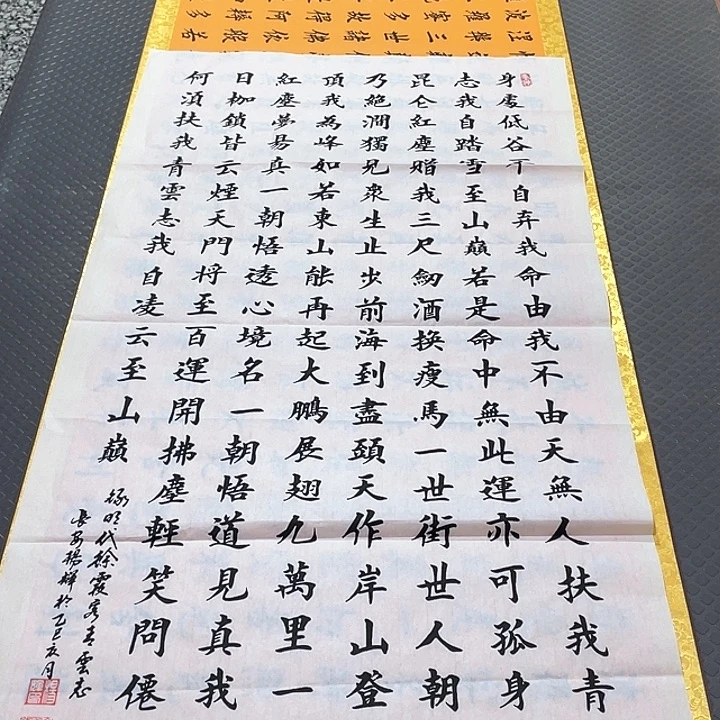 身處低谷不自弃我命由我不由天無人扶我青
志我自踏雪至山巔若是命中無此運亦可孤身
昆仑紅塵贈我三尺劒酒換瘦馬一世街世人朝
乃絕澗獨見衆生止步前海到盡頭天作岸山登
頂我為峰如若東山能再起大鵬展翅九萬里一
紅塵夢易真一朝悟透心境名一朝悟道見真我
日枷鎖皆云煙天門將至百運開拂塵輕笑問僊
何須扶我青雲志我自凌云至山巔
錄明代徐霞客青雲志
長安楊輝於乙巳亥月